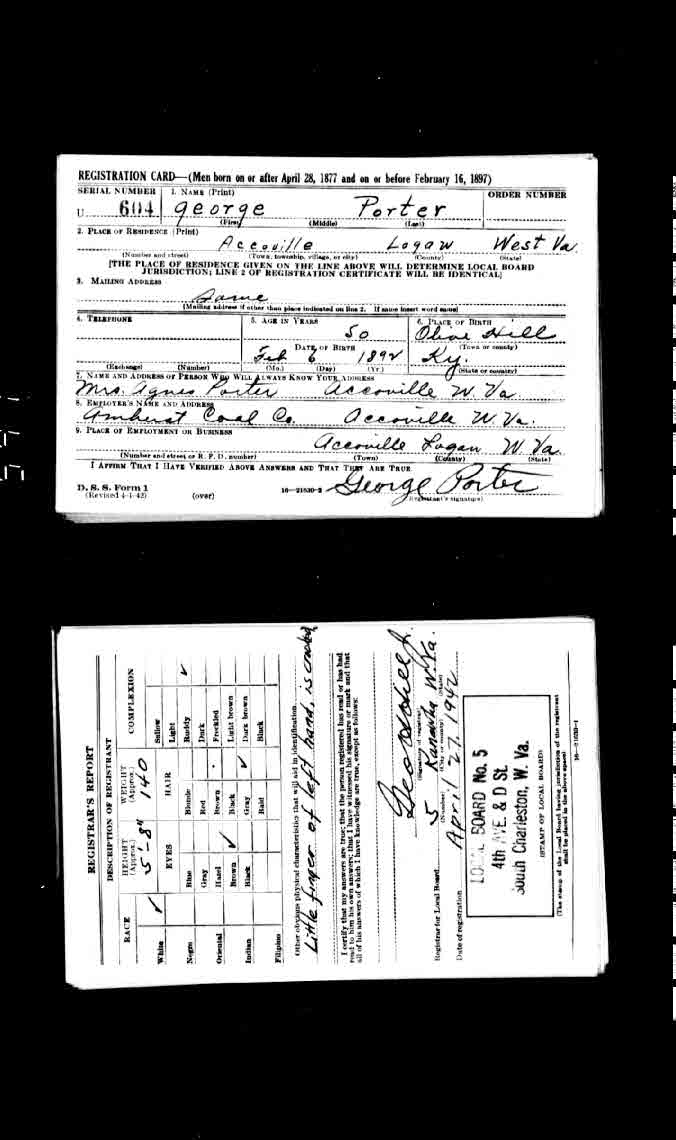 REGISTRATION CARD—(Men born on or after April 28, 1877 and on or before February 16, 1897)
SERIAL NUMBER 1. NAME (Print) ORDER NUMBER
U 604 George Porter
(First) (Middle) (Last)
2. PLACE OF RESIDENCE (Print)
Accoville Logan West Va.
(Number and street) (Town, township, village, or city) (County) (State)
[THE PLACE OF RESIDENCE GIVEN ON THE LINE ABOVE WILL DETERMINE LOCAL BOARD
JURISDICTION; LINE 2 OF REGISTRATION CERTIFICATE WILL BE IDENTICAL]
3. MAILING ADDRESS
Same
[Mailing address if other than place indicated on line 2. If same insert word same]
4. TELEPHONE 5. AGE IN YEARS 6. PLACE OF BIRTH
50 Olive Hill
DATE OF BIRTH (Town or county)
Feb 6 1892 Ky.
(Exchange) (Number) (Mo.) (Day) (Yr.) (State or country)
7. NAME AND ADDRESS OF PERSON WHO WILL ALWAYS KNOW YOUR ADDRESS
Mrs. Agnes Porter Accoville W. Va.
8. EMPLOYER'S NAME AND ADDRESS
Amherst Coal Co. Accoville W. Va.
9. PLACE OF EMPLOYMENT OR BUSINESS
Accoville Logan W. Va.
(Number and street or R. F. D. number) (Town) (County) (State)
I AFFIRM THAT I HAVE VERIFIED ABOVE ANSWERS AND THAT THEY ARE TRUE
D. S. S. Form 1
(Revised 4-1-42) (over) 16—21630-2 George Porter
(Registrant's signature)
REGISTRAR'S REPORT
DESCRIPTION OF REGISTRANT
RACE HEIGHT (Approx.) WEIGHT (Approx.) COMPLEXION
5'-8" 140
White ✓ EYES HAIR Sallow
Light
Negro Blue Blonde Ruddy ✓
Gray Red Dark
Oriental Hazel Brown Freckled
Brown ✓ Black Light brown
Indian Black Gray ✓ Dark brown
Filipino Bald Black
Other obvious physical characteristics that will aid in identification
Little finger of left hand, is
I certify that my answers are true; that the person registered has read or has had
read to him his own answers; that I have witnessed his signature or mark and that
all of his answers of which I have knowledge are true, except as follows:
(Signature of registrar)
Registrar for Local Board 5 Kanawha W. Va.
(Number) (City or county) (State)
Date of registration April 27, 1942
LOCAL BOARD No. 5
4th AVE. & D St.
South Charleston, W. Va.
(STAMP OF LOCAL BOARD)
(The stamp of the Local Board having jurisdiction of the registrant
shall be placed in the above space)
16—21630-1